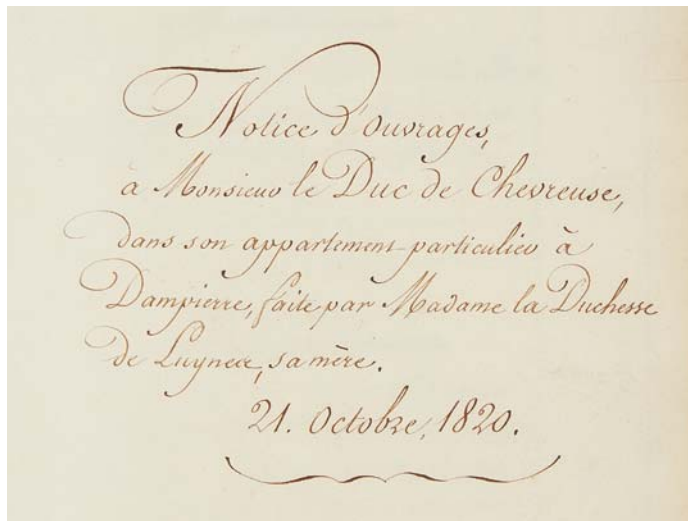 Notice d'Ouvrages,
à Monsieur le Duc de Chevreuse,
dans son appartement particulier à
Dampierre, faite par Madame la Duchesse
de Luynes, sa mère.
21. Octobre, 1820.